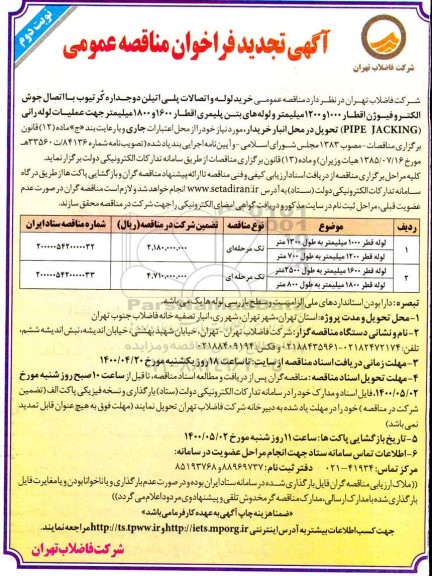 نوبت دوم
آگهی تجدید فراخوان مناقصه عمومی
شرکت فاضلاب تهران
شرکت فاضلاب تهران در نظر دارد مناقصه عمومی خرید لوله و اتصالات پلی اتیلن دو جداره کُر تیوب با اتصال جوش
الکتروفیوژن اقطار ۱۰۰۰ و ۱۲۰۰ میلیمتر و لوله‌های بتن پلیمری اقطار ۱۶۰۰ و ۱۸۰۰ میلیمتر جهت عملیات لوله رانی
(PIPE JACKING) تحویل در محل انبار خریدار، مورد نیاز خود را از محل اعتبارات جاری و با رعایت بند «ج» ماده (۱۲) قانون
برگزاری مناقصات - مصوب ۱۳۸۳ مجلس شورای اسلامی - و آیین‌نامه اجرایی بند یاد شده (تصویب نامه شماره ۸۴۱۳۶/ت۳۳۵۶۰هـ
مورخ ۱۳۸۵/۰۷/۱۶ هیات وزیران) و ماده (۱۳) قانون برگزاری مناقصات از طریق سامانه تدارکات الکترونیکی دولت برگزار نماید.
کلیه مراحل برگزاری مناقصه از دریافت اسناد ارزیابی کیفی و فنی مناقصه تا ارائه پیشنهاد مناقصه گران و بازگشایی پاکت ها از طریق درگاه
سامانه تدارکات الکترونیکی دولت (ستاد) به آدرس www.setadiran.ir انجام خواهد شد و لازم است مناقصه گران در صورت عدم
عضویت قبلی، مراحل ثبت نام در سایت مذکور و دریافت گواهی امضای الکترونیکی را جهت شرکت در مناقصه محقق سازند.
ردیف موضوع نوع مناقصه تضمین شرکت در مناقصه (ریال) شماره مناقصه ستاد ایران
۱ لوله قطر ۱۰۰۰ میلیمتر به طول ۱۳۰۰ متر تک مرحله‌ای ۲.۱۸۰.۰۰۰.۰۰۰ ۲۰۰۰۰۰۵۴۲۰۰۰۰۳۲
لوله قطر ۱۲۰۰ میلیمتر به طول ۷۰۰ متر
۲ لوله قطر ۱۶۰۰ میلیمتر به طول ۲۵۰۰ متر تک مرحله‌ای ۴.۷۱۰.۰۰۰.۰۰۰ ۲۰۰۰۰۰۵۴۲۰۰۰۰۳۳
لوله قطر ۱۸۰۰ میلیمتر به طول ۸۰۰ متر
تبصره: دارا بودن استانداردهای ملی الزامیست، سطح بازرسی لوله ها یک می‌باشد.
۱- محل تحویل و مدت پروژه: استان تهران، شهر تهران، شهرری، انبار تصفیه خانه فاضلاب جنوب تهران
۲- نام و نشانی دستگاه مناقصه گزار: شرکت فاضلاب تهران- تهران، خیابان شهید بهشتی، خیابان اندیشه، نبش اندیشه ششم،
تلفن: ۰۲۱۸۲۴۷۲۱۷۴-۰۲۱۸۸۴۳۵۹۶۱ و فکس: ۰۲۱۸۸۴۰۹۱۹۴
۳- مهلت زمانی دریافت اسناد مناقصه از سایت: تا ساعت ۱۸ روز یکشنبه مورخ ۱۴۰۰/۰۴/۲۰
۴- مهلت تحویل اسناد مناقصه: مناقصه گران پس از دریافت و مطالعه اسناد مناقصه، تا قبل از ساعت ۱۰ صبح روز شنبه مورخ
۱۴۰۰/۰۵/۰۲، فایل اسناد و مدارک خود را در سامانه تدارکات الکترونیکی دولت (ستاد) بارگذاری و نسخه فیزیکی پاکت الف (تضمین
شرکت در مناقصه) خود را در مهلت یاد شده به دبیرخانه شرکت فاضلاب تهران تحویل نمایند (مهلت فوق به هیچ عنوان قابل تمدید
نمی باشد)
۵- تاریخ بازگشایی پاکت ها: ساعت ۱۱ روز شنبه مورخ ۱۴۰۰/۰۵/۰۲
۶- اطلاعات تماس سامانه ستاد جهت انجام مراحل عضویت در سامانه:
مرکز تماس: ۴۱۹۳۴-۰۲۱ دفتر ثبت نام: ۸۸۹۶۹۷۳۷ و ۸۵۱۹۳۷۶۸
((ملاک ارزیابی مناقصه گران فایل بارگذاری شده در سامانه ستاد ایران بوده و در صورت عدم بارگذاری و یا ناخوانا بودن و یا مغایرت فایل
بارگذاری شده با مدارک ارسالی، مدارک مناقصه گر مخدوش تلقی و پیشنهاد وی مردود اعلام می گردد))
«ضمنا هزینه چاپ آگهی به عهده کارفرما می باشد»
جهت کسب اطلاعات بیشتر به آدرس اینترنتی http://iets.mporg.ir و http://ts.tpww.ir مراجعه نمایند.
شرکت فاضلاب تهران